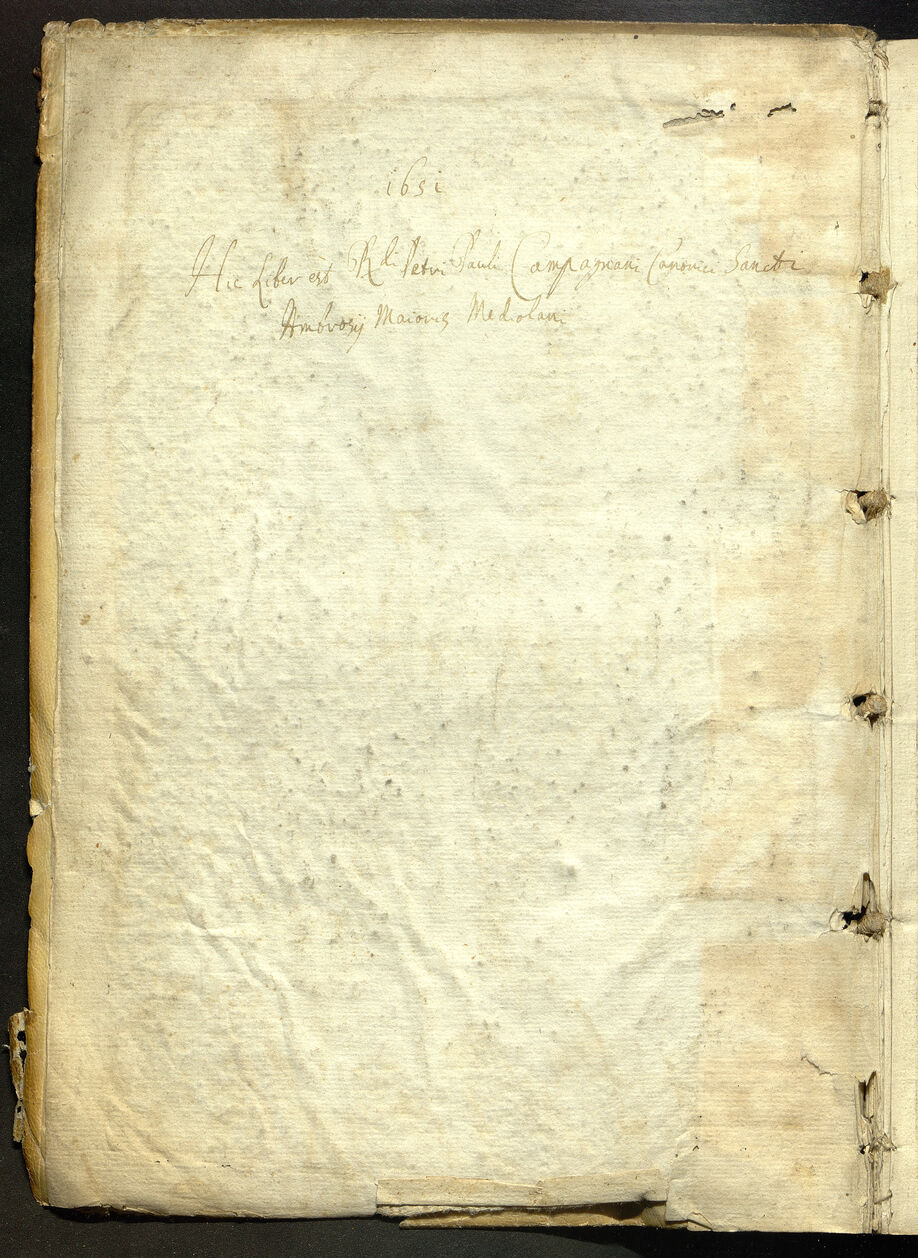 1651
Hic Liber est R.di Petri Pauli Campagnani Canonici Sancti
Ambrosij Maioris Mediolani